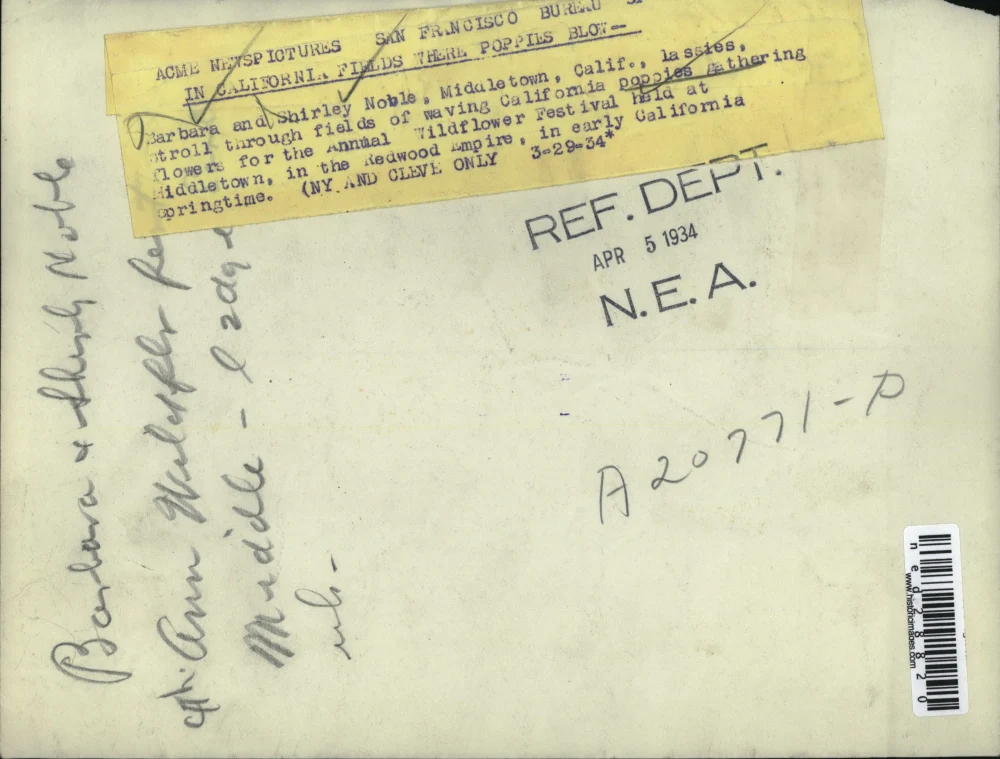 ACME NEWSPICTURES SAN FRANCISCO BUREAU
IN CALIFORNIA FIELDS WHERE POPPIES BLOW--
Barbara and Shirley Noble, Middletown, Calif., lassies,
stroll through fields of waving California poppies gathering
flowers for the Annual Wildflower Festival held at
Middletown, in the Redwood Empire, in early California
springtime. (NY AND CLEVE ONLY 3-29-34*
REF. DEPT.
APR 5 1934
N.E.A.
A20771-P
Barbara & Shirly Noble
Ann
Middle -
ned28820
www.historicimages.com